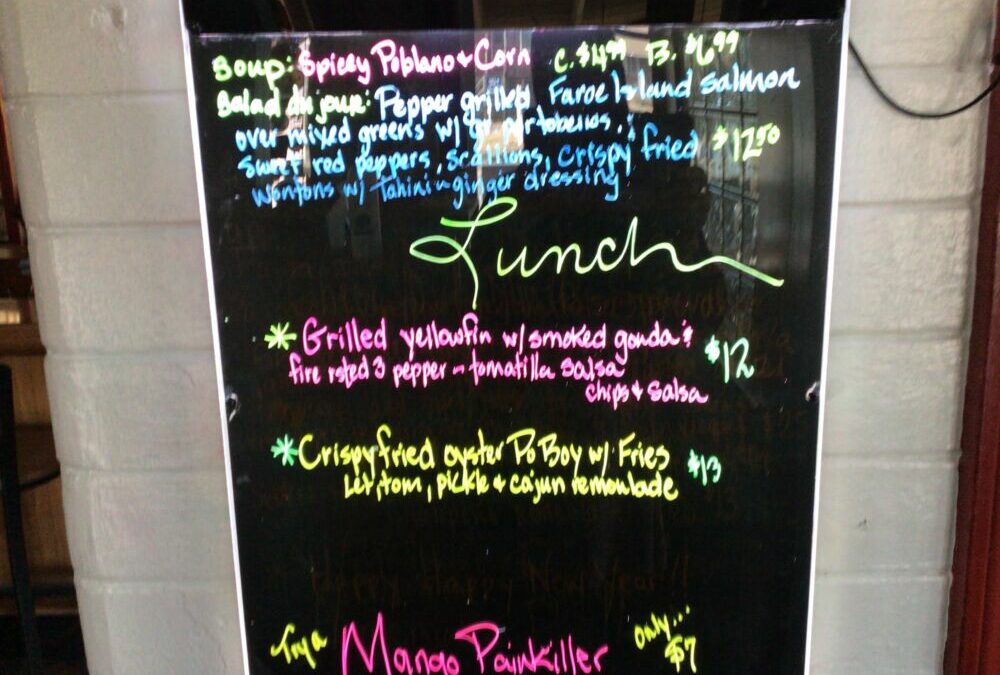 Soup: Spicey Poblano + Corn C. $4.99 B. $6.99
Salad du jour: Pepper grilled Faroe Island Salmon
over mixed greens w/ gr portobellos,
Sweet red peppers, scallions, crispy fried $12.50
Wontons w/ Tahini-ginger dressing
Lunch
* Grilled yellowfin w/ smoked gouda &
fire rsted 3 pepper - tomatilla salsa $12
chips & salsa
* Crispy fried oyster Po Boy w/ Fries $13
Let, tom, pickle & cajun remoulade
Happy Happy New Year!
Try a Mango Painkiller only... $7